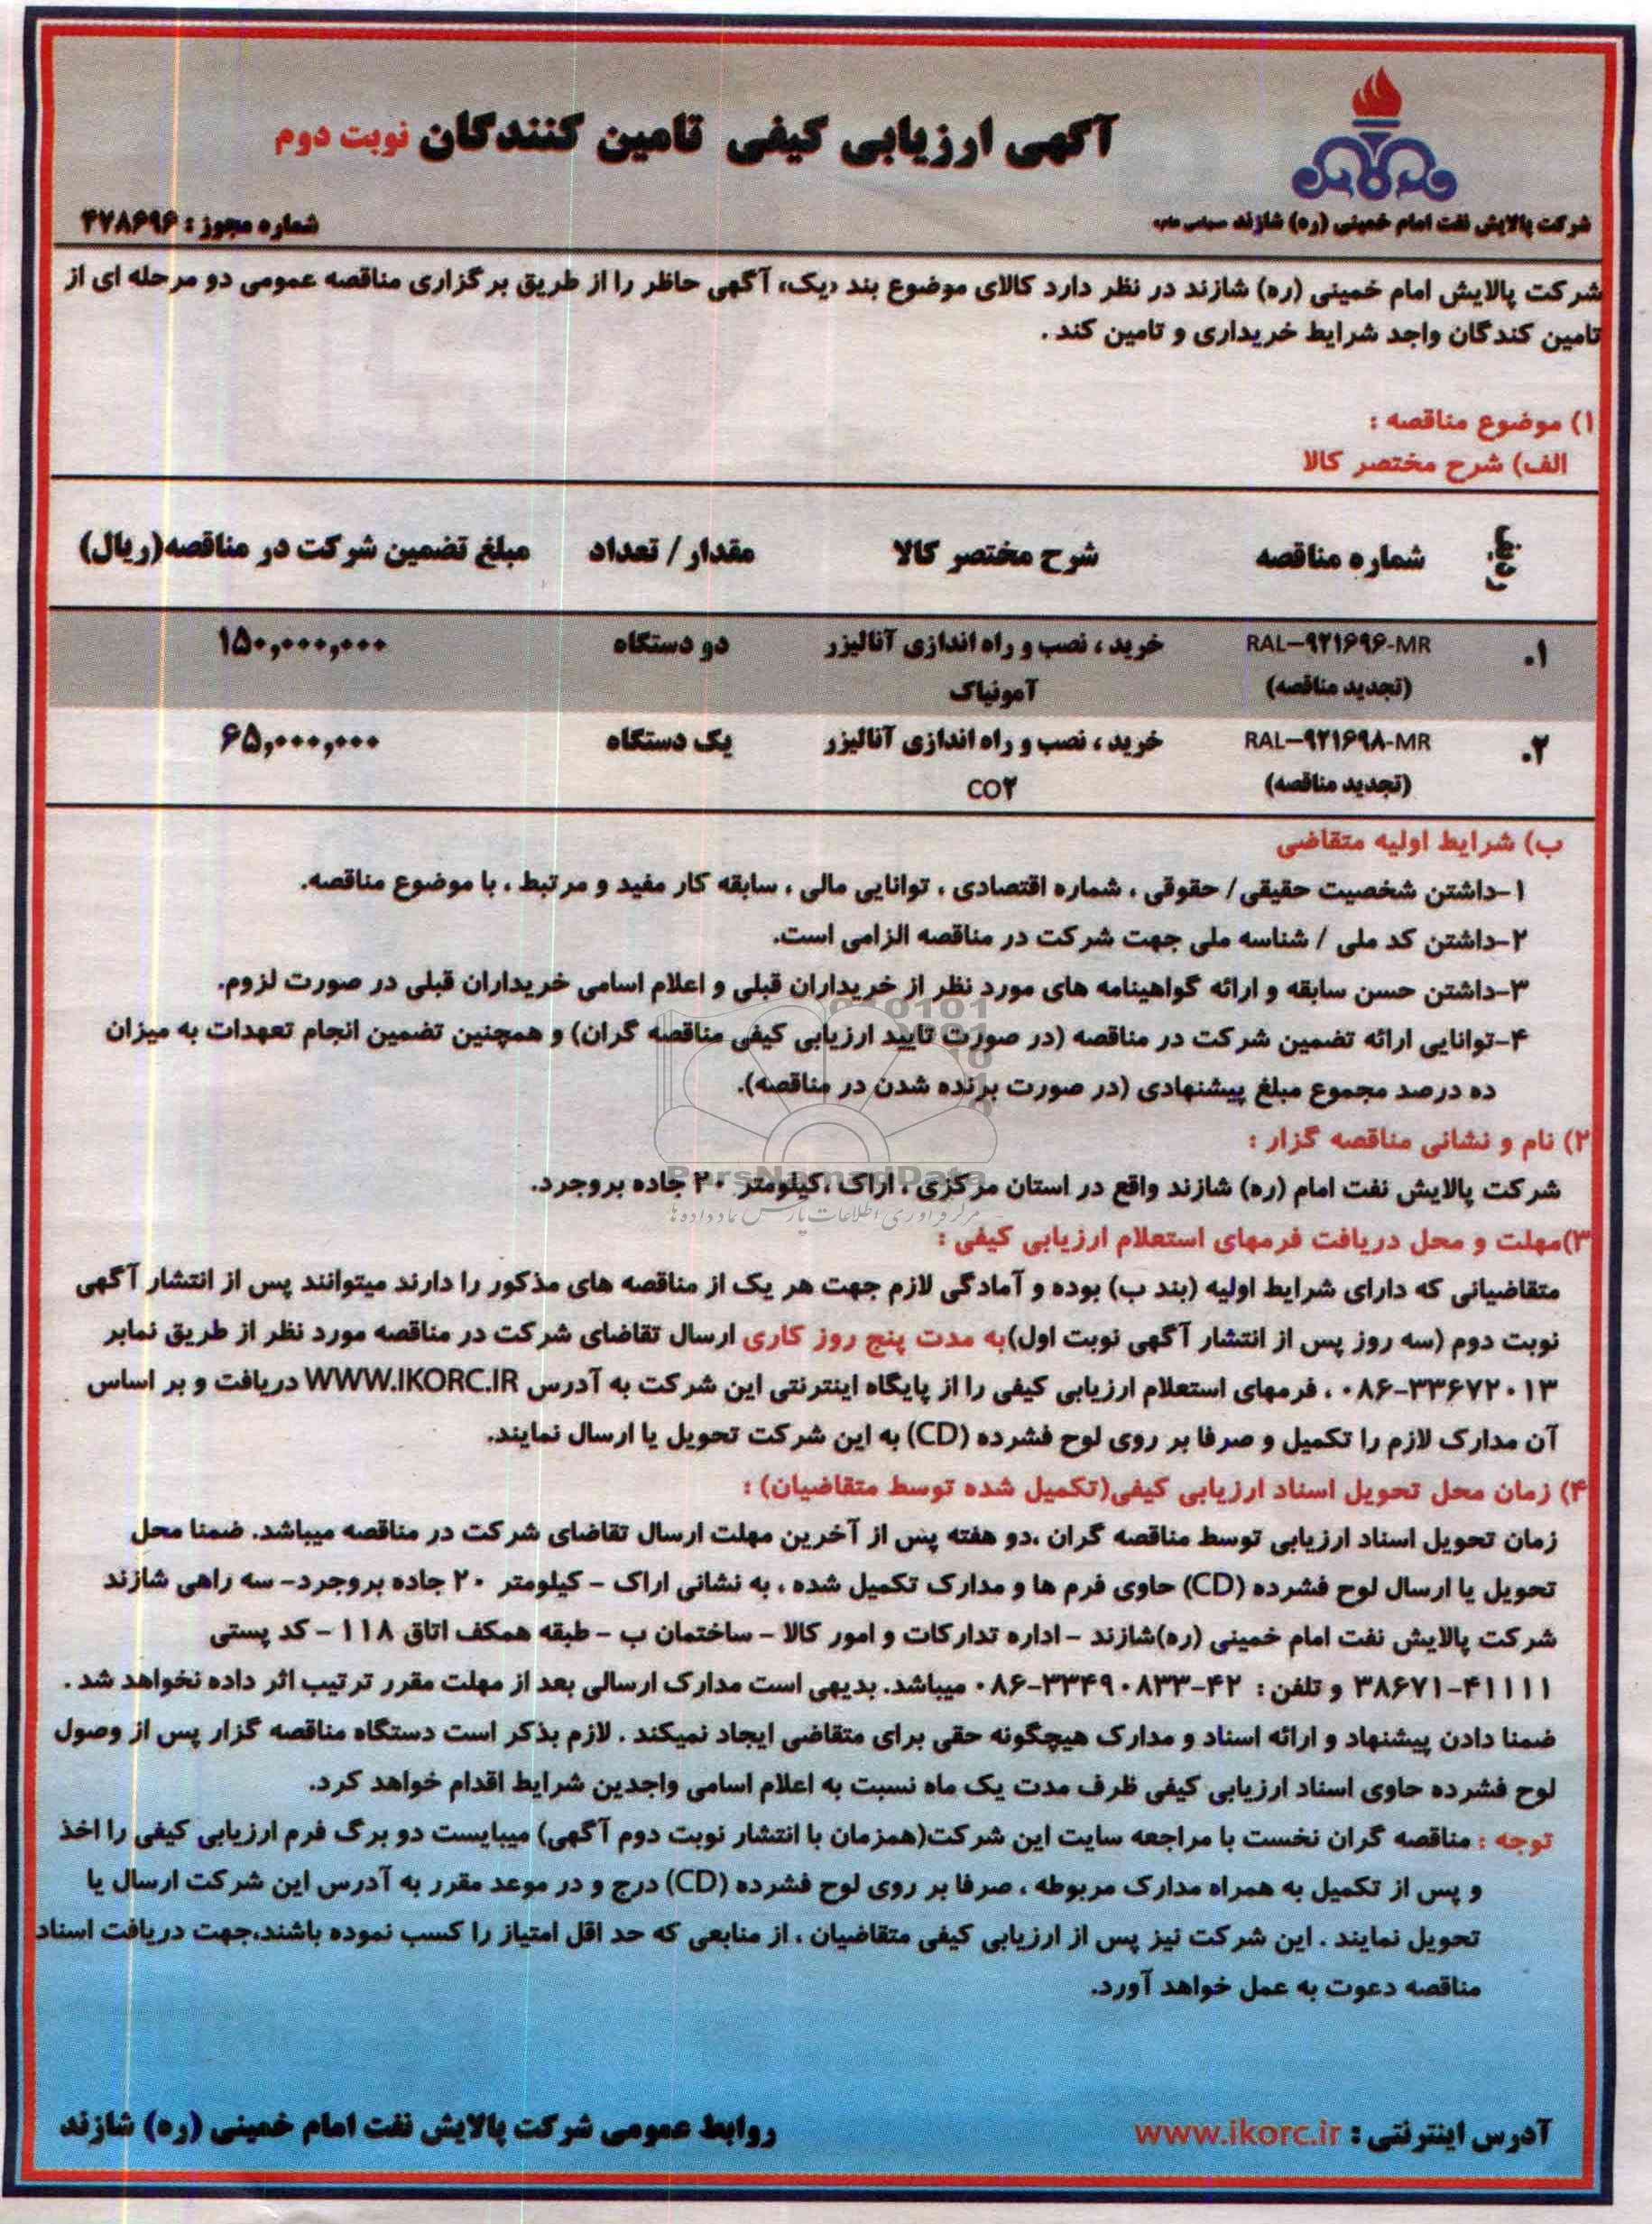 آگهی ارزیابی کیفی تامین کنندگان نوبت دوم
شرکت پالایش نفت امام خمینی (ره) شازند سهامی عام
شماره مجوز : ۴۷۸۶۹۶
شرکت پالایش امام خمینی (ره) شازند در نظر دارد کالای موضوع بند «یک» آگهی حاظر را از طریق برگزاری مناقصه عمومی دو مرحله ای از
تامین کندگان واجد شرایط خریداری و تامین کند .
۱) موضوع مناقصه :
الف) شرح مختصر کالا
ردیف شماره مناقصه شرح مختصر کالا مقدار / تعداد مبلغ تضمین شرکت در مناقصه(ریال)
۰۱ RAL-۹۲۱۶۹۶-MR خرید ، نصب و راه اندازی آنالیزر دو دستگاه ۱۵۰,۰۰۰,۰۰۰
(تجدید مناقصه) آمونیاک
۰۲ RAL-۹۲۱۶۹۸-MR خرید ، نصب و راه اندازی آنالیزر یک دستگاه ۶۵,۰۰۰,۰۰۰
(تجدید مناقصه) CO۲
ب) شرایط اولیه متقاضی
۱-داشتن شخصیت حقیقی / حقوقی ، شماره اقتصادی ، توانایی مالی ، سابقه کار مفید و مرتبط ، با موضوع مناقصه.
۲-داشتن کد ملی / شناسه ملی جهت شرکت در مناقصه الزامی است.
۳-داشتن حسن سابقه و ارائه گواهینامه های مورد نظر از خریداران قبلی و اعلام اسامی خریداران قبلی در صورت لزوم.
۴-توانایی ارائه تضمین شرکت در مناقصه (در صورت تایید ارزیابی کیفی مناقصه گران) و همچنین تضمین انجام تعهدات به میزان
ده درصد مجموع مبلغ پیشنهادی (در صورت برنده شدن در مناقصه).
۲) نام و نشانی مناقصه گزار :
شرکت پالایش نفت امام (ره) شازند واقع در استان مرکزی ، اراک ،کیلومتر ۲۰ جاده بروجرد.
ParsNamadData
مرکز فرآوری اطلاعات پارس نماد داده ها
۳)مهلت و محل دریافت فرمهای استعلام ارزیابی کیفی :
متقاضیانی که دارای شرایط اولیه (بند ب) بوده و آمادگی لازم جهت هر یک از مناقصه های مذکور را دارند میتوانند پس از انتشار آگهی
نوبت دوم (سه روز پس از انتشار آگهی نوبت اول)به مدت پنج روز کاری ارسال تقاضای شرکت در مناقصه مورد نظر از طریق نمابر
۰۸۶-۳۳۶۷۲۰۱۳ ، فرمهای استعلام ارزیابی کیفی را از پایگاه اینترنتی این شرکت به آدرس WWW.IKORC.IR دریافت و بر اساس
آن مدارک لازم را تکمیل و صرفا بر روی لوح فشرده (CD) به این شرکت تحویل یا ارسال نمایند.
۴) زمان محل تحویل اسناد ارزیابی کیفی(تکمیل شده توسط متقاضیان) :
زمان تحویل اسناد ارزیابی توسط مناقصه گران ،دو هفته پس از آخرین مهلت ارسال تقاضای شرکت در مناقصه میباشد. ضمنا محل
تحویل یا ارسال لوح فشرده (CD) حاوی فرم ها و مدارک تکمیل شده ، به نشانی اراک – کیلومتر ۲۰ جاده بروجرد– سه راهی شازند
شرکت پالایش نفت امام خمینی (ره)شازند – اداره تدارکات و امور کالا – ساختمان ب – طبقه همکف اتاق ۱۱۸ – کد پستی
۳۸۶۷۱-۴۱۱۱۱ و تلفن : ۴۲-۰۸۶-۳۳۴۹۰۸۳۳ میباشد. بدیهی است مدارک ارسالی بعد از مهلت مقرر ترتیب اثر داده نخواهد شد .
ضمنا دادن پیشنهاد و ارائه اسناد و مدارک هیچگونه حقی برای متقاضی ایجاد نمیکند . لازم بذکر است دستگاه مناقصه گزار پس از وصول
لوح فشرده حاوی اسناد ارزیابی کیفی ظرف مدت یک ماه نسبت به اعلام اسامی واجدین شرایط اقدام خواهد کرد.
توجه : مناقصه گران نخست با مراجعه سایت این شرکت(همزمان با انتشار نوبت دوم آگهی) میبایست دو برگ فرم ارزیابی کیفی را اخذ
و پس از تکمیل به همراه مدارک مربوطه ، صرفا بر روی لوح فشرده (CD) درج و در موعد مقرر به آدرس این شرکت ارسال یا
تحویل نمایند . این شرکت نیز پس از ارزیابی کیفی متقاضیان ، از منابعی که حد اقل امتیاز را کسب نموده باشند،جهت دریافت اسناد
مناقصه دعوت به عمل خواهد آورد.
آدرس اینترنتی : www.ikorc.ir
روابط عمومی شرکت پالایش نفت امام خمینی (ره) شازند